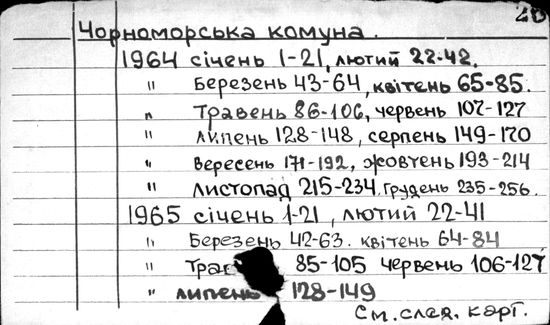 20
Чорноморська комуна.
1964 січень 1-21, лютий 22-42.
" Березень 43-64, квітень 65-85.
" Травень 86-106, червень 107-127
" липень 128-148, серпень 149-170
" вересень 171-192, жовтень 193-214
" листопад 215-234, грудень 235-256.
1965 січень 1-21, лютий 22-41
" Березень 42-63. квітень 64-84
" 85-105 червень 106-127
" липень 128-149
См. след. карт.